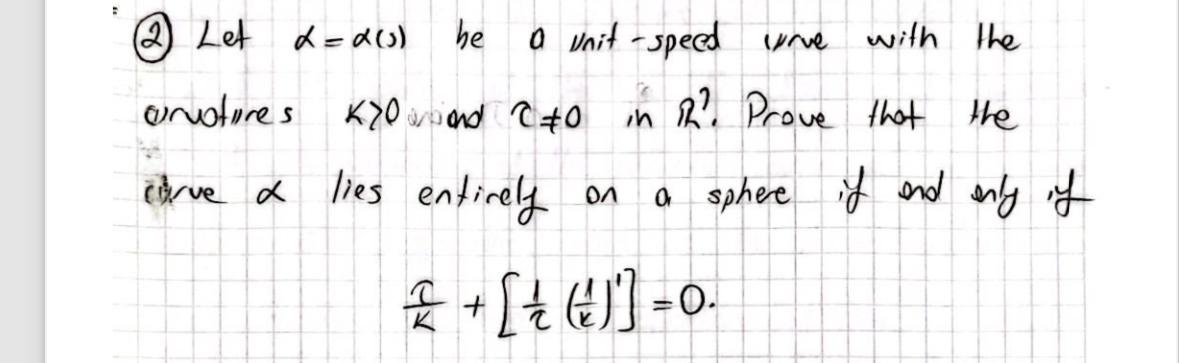 ② Let α = α(s) be a unit-speed curve with the
curvatures κ>0 and τ≠0 in ℝ³. Prove that the
curve α lies entirely on a sphere if and only if
τ/κ + [1/τ (1/κ)'] = 0.